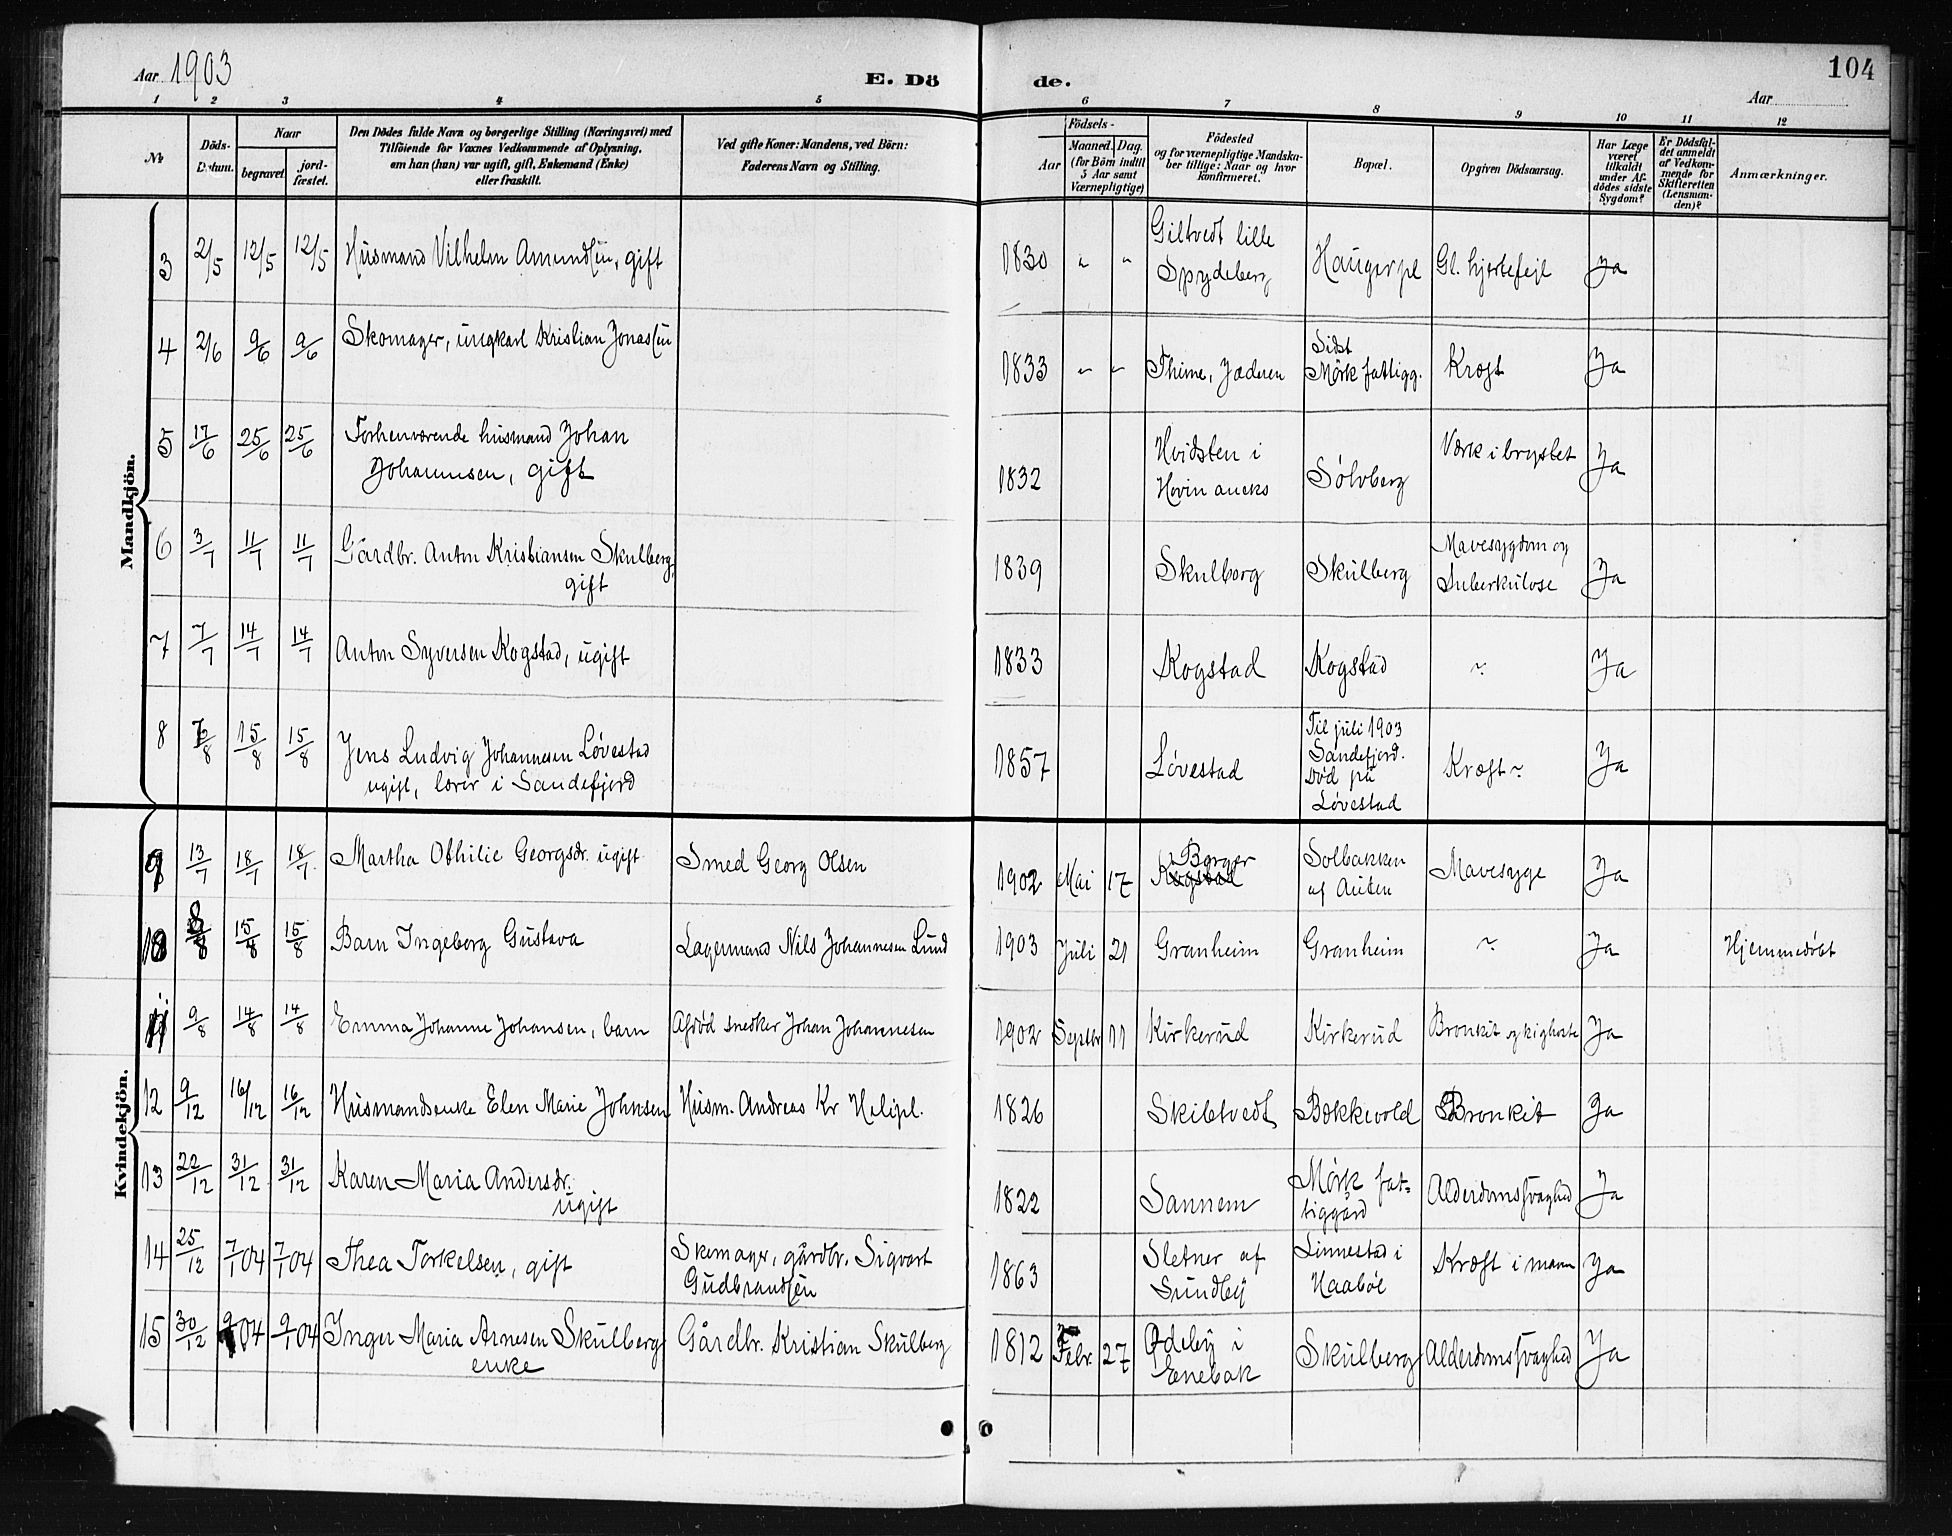 Aar 1903
E. Dö
de.
104
Aar
1 2 3 4 5 6 7 8 9 10 11 12
No
Döds-
Datum.
Naar
begravet
jord-
fæstet.
Den Dödes fulde Navn og borgerlige Stilling (Næringsvei) med
Tilföiende for Voxnes Vedkommende af Oplysning,
om han (hun) var ugift, gift, Enkemand (Enke)
eller fraskilt.
Ved gifte Koner: Mandens, ved Börn:
Faderens Navn og Stilling.
Födsels-
Aar
Maaned. Dag.
(for Börn indtil
5 Aar samt
Værnepligtige)
Födested
og for værnepligtige Mandska-
ber tillige: Naar og hvor
konfirmeret.
Bopæl.
Opgiven Dödsaarsag.
Har Læge
været
tilkaldt
under Af-
dödes sidste
Sygdom?
Er Dödsfal-
det anmeldt
af Vedkom-
mende for
Skifteretten
(Lensman-
den)?
Anmærkninger.
Mandkjön.
3 2/5 12/5 12/5 Husmand Vilhelm Amundsen, gift 1830 " " Giltvedt lille
Spydeberg Haugerpl Gl. hjertefejl Ja
4 2/6 9/6 9/6 Skomager, ungkarl Kristian Jonassen 1833 " " Thime, Jæderen Sidst
Mörk fattigg. Kræft Ja
5 17/6 25/6 25/6 Forhenværende husmand Johan
Johannesen, gift 1832 Hvidsten i
Hovin aneks Sølvberg Værk i brystet Ja
6 3/7 11/7 11/7 Gårdbr. Anton Kristiansen Skulberg,
gift 1839 Skulberg Skulberg Mavesygdom og
Tuberkulose Ja
7 7/7 14/7 14/7 Anton Syversen Kogstad, ugift 1833 Kogstad Kogstad ~ Ja
8 /8 15/8 15/8 Jens Ludvig Johannesen Løvestad
ugift, lærer i Sandefjord 1857 Løvestad Til juli 1903
Sandefjord.
Død på
Løvestad Kræft ~ Ja
Kvindekjön.
9 13/7 18/7 18/7 Martha Othilie Georgsdr. ugift Smed Georg Olsen 1902 Mai 17 Berger
Kogstad Solbakken
af Auten Mavesyge Ja
10 8/8 15/8 15/8 Barn Ingeborg Gustava Lagermand Nils Johannesen Lund 1903 Juli 21 Granheim Granheim ~ Ja Hjemmedøbt
11 9/8 14/8 14/8 Emma Johanne Johansen, barn Afdød snedker Johan Johannesen 1902 Septbr 11 Kirkerud Kirkerud Bronkit og kighoste Ja
12 9/12 16/12 16/12 Husmandsenke Elen Marie Johnsen Husm. Andreas Kr Helipl. 1826 Skibtvedt Bækkevold Bronkit Ja
13 22/12 31/12 31/12 Karen Maria Andersdr.
ugift 1822 Sannem Mørk fat-
tiggård Alderdomssvaghed Ja
14 25/12 7/1 04 7/1 04 Thea Torkelsen, gift Skomager, gårdbr. Sigvart
Gudbrandsen 1863 Sletner af
Sundby Linnestad i
Haabøl Kræft i maven Ja
15 30/12 9/1 04 9/1 04 Inger Maria Arnesen Skulberg
enke Gårdbr. Kristian Skulberg 1812 Febr. 27 Ødeby i
Enebak Skulberg Alderdomssvaghed Ja